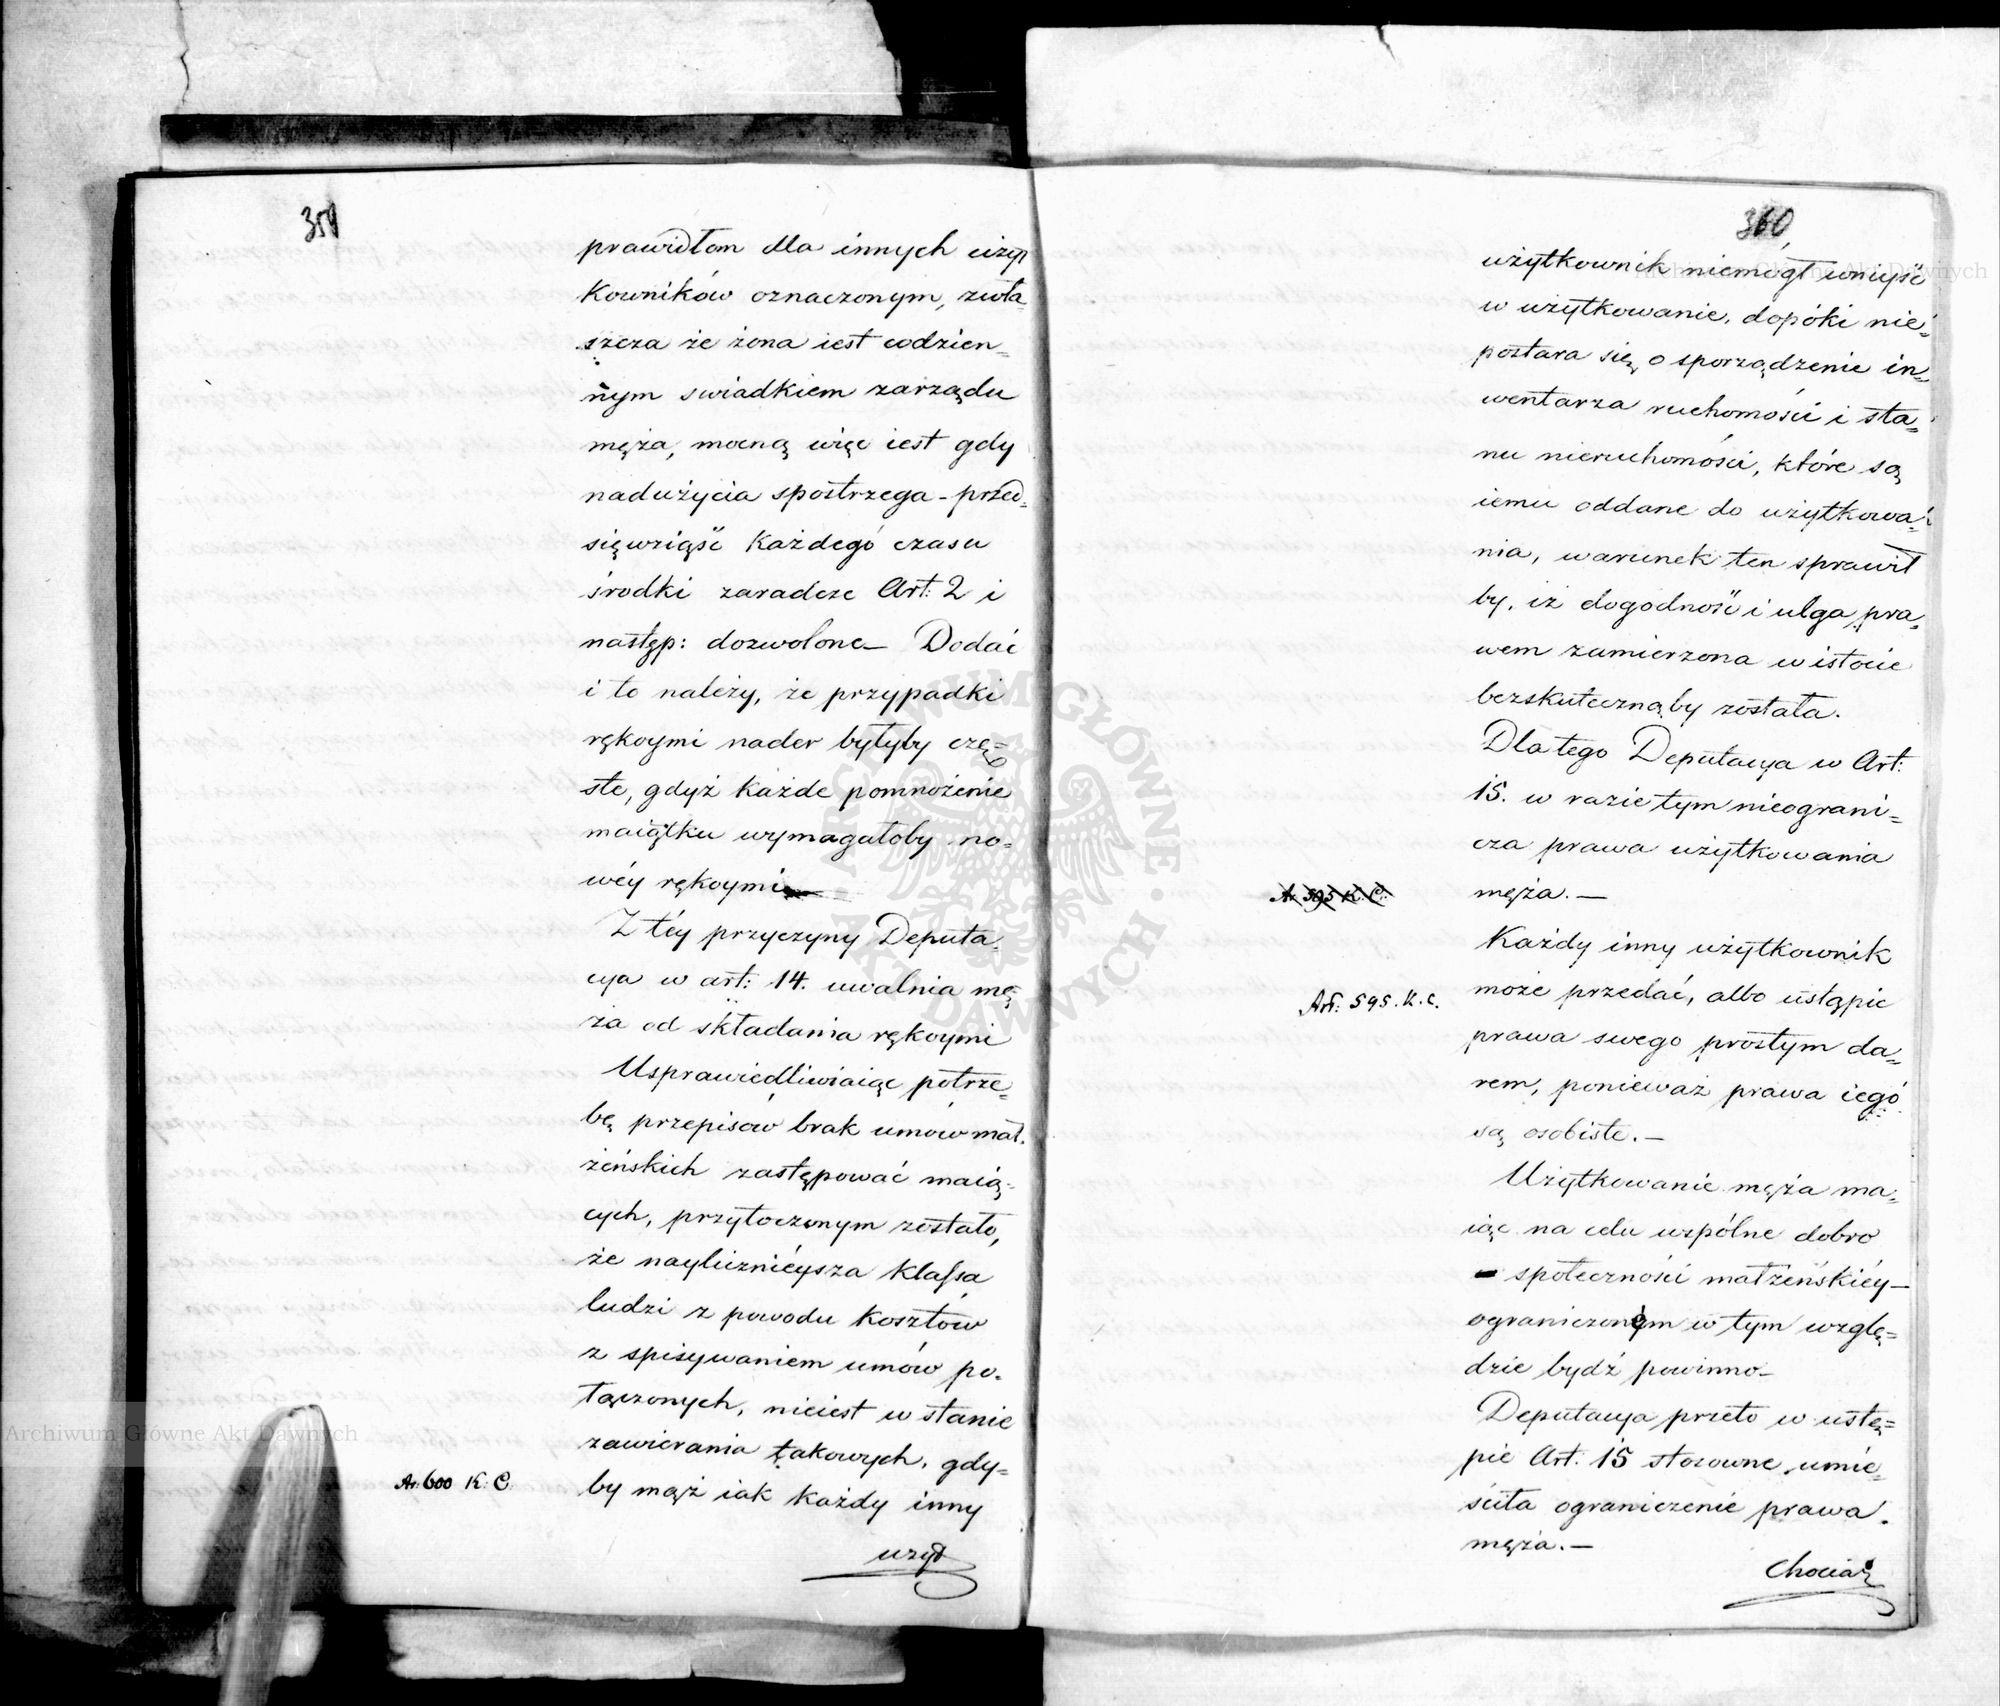 359
prawidłom dla innych użyt
kowników oznaczonym, zwła-
szcza że żona iest codzien-
nym swiadkiem zarządu
męża, mocną więc iest gdy
nadużycia spostrzega - przed-
sięwziąść każdego czasu
środki zaradcze Art: 2 i
następ: dozwolone — Dodać
i to należy, że przypadki
rękoymi nader byłyby czę=
ste, gdyż każde pomnożenie
maiątku wymagałoby no=
wéy rękoymi
Z téy przyczyny Deputa-
cya w art: 14. uwalnia mę-
ża od składania rękoymi
Usprawiedliwiaiąc potrze-
bę przepisów brak umów mał-
żeńskich zastępować maią-
cych, przytoczonym zostało,
że naylicznieysza klassa
ludzi z powodu kosztów
z spisywaniem umów po-
łączonych, nieiest w stanie
zawierania takowych, gdy=
Ar: 600 K: C:
by mąż iak każdy inny
użyt
360
użytkownik niemógł wniyść
w użytkowanie, dopóki nie-
postara się o sporządzenie in-
wentarza ruchomości i sta-
nu nieruchomości, które są
iemu oddane do użytkowa-
nia, warunek ten sprawił
by, iż dogodność i ulga pra-
wem zamierzona w istocie
bezskuteczną by została.
Dla tego Deputacya w Art:
15. w razie tym nieograni=
cza prawa użytkowania
Ar 595 K: C:
męża. —
Każdy inny użytkownik
może przedać, albo ustąpic
Art: 595. K. C.
prawa swego prostym da-
rem, ponieważ prawa iego
są osobiste. —
Użytkowanie męża ma-
iąc na celu wspólne dobro
społeczności małżeńskiéy —
ograniczoném w tym wzglę=
dzie bydź powinno —
Deputacya przeto w ustę=
pie Art: 15 stosowne umie-
ściła ograniczenie prawa
męża. —
Chociaż
Archiwum Główne Akt Dawnych
ARCHIWUM GŁÓWNE AKT DAWNYCH
Archiwum Główne Akt Dawnych